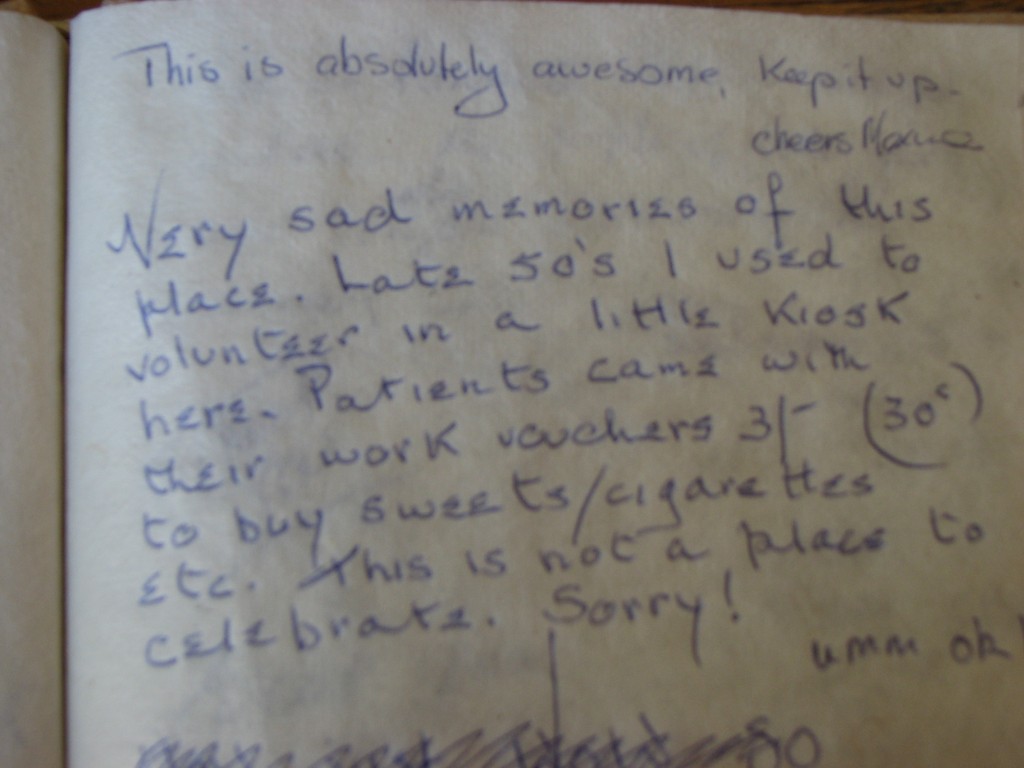 This is absolutely awesome, Keep it up.
cheers
Very sad memories of this
place. Late 50's I used to
volunteer in a little kiosk
here. Patients came with
their work vouchers 3/- (30c)
to buy sweets/cigarettes
etc. This is not a place to
celebrate. Sorry!
umm ok!
so